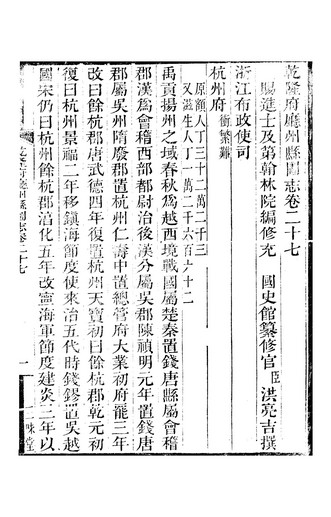 乾隆府廳州縣圖志卷二十七
賜進士及第翰林院編修充 國史館纂修官臣洪亮吉撰
浙江布政使司
杭州府衝繁難
原額人丁三十二萬二千三
又滋生人丁一萬二千六百六十二
禹貢揚州之域春秋爲越西境戰國屬楚秦置錢唐縣屬會稽
郡漢爲會稽西部都尉治後漢分屬吳郡陳禎明元年置錢唐
郡屬吳州隋廢郡置杭州仁壽中置總管府大業初府罷三年
改曰餘杭郡唐武德四年復置杭州天寶初曰餘杭郡乾元初
復曰杭州景福二年移鎮海節度使來治五代時錢鏐置吳越
國宋仍曰杭州餘杭郡淳化五年改寧海軍節度建炎三年以
府廳州縣圖志卷二十七
一
味堂